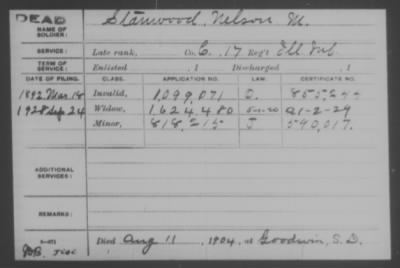 DEAD
NAME OF SOLDIER: Stanwood, Nelson M.
SERVICE: Late rank, Co. C. 17 Reg't Ill. Inf.
TERM OF SERVICE: Enlisted , 1 Discharged , 1
DATE OF FILING. CLASS. APPLICATION NO. LAW. CERTIFICATE NO.
1892 Mar. 18 Invalid, 1,099,071 O.
1928 Sep 24 Widow, 1,624,480 a1-2-29
Minor, 818,215 J 590,017.
ADDITIONAL SERVICES:
REMARKS:
Died Aug 11, 1904, at Goodwin, S.D.